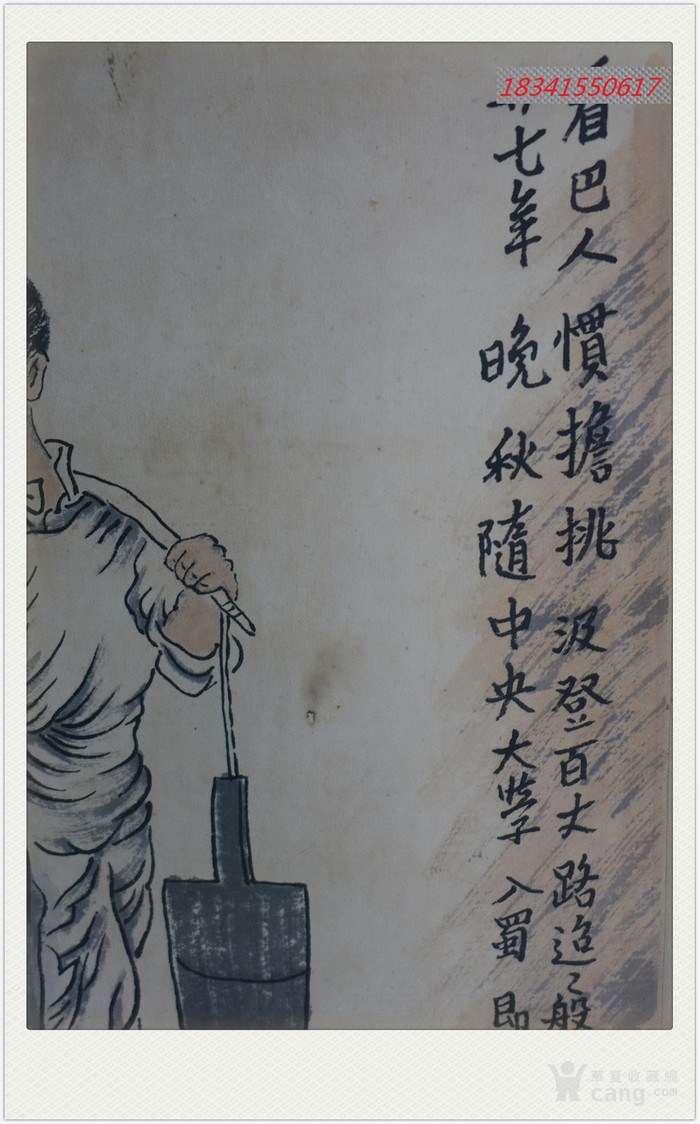 18341550617
看巴人 慣擔挑 汲登百丈 路迢〻 般
七年 晚秋隨中央大學入蜀 即
華夏收藏網
cang.com